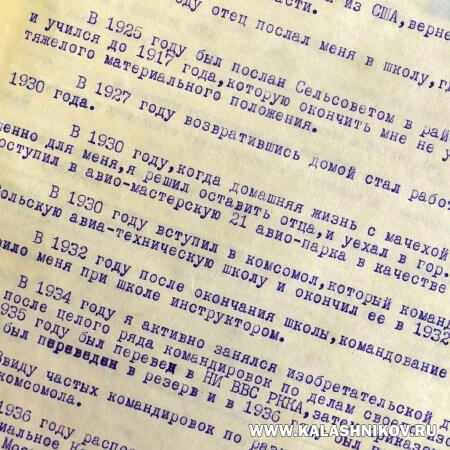 из США, верне
ду отец послал меня в школу, гд
и учился до 1917 года, которую окончить мне не у
В 1925 году был послан Сельсоветом в рай
тяжелого материального положения.
1930 года.
В 1927 году возвратившись домой стал работ
В 1930 году, когда домашняя жизнь с мачехой
шенно для меня, я решил оставить отца, и уехал в гор.
оступил в авио-мастерскую 21 авио-парка в качестве
В 1930 году вступил в комсомол, который команд
ольскую авиа-техническую школу и окончил ее в 1932
В 1932 году после окончания школы, командование
ило меня при школе инструктором.
В 1934 году я активно занялся изобретательской д
после целого ряда командировок по делам своих изо
935 году был переведен в НИ ВВС РККА, затем приказом
был переведен в резерв и в 1936 году был
Ввиду частых командировок по раз
комсомола.
1936 году распо
иальное
Мос
WWW.KALASHNIKOV.RU